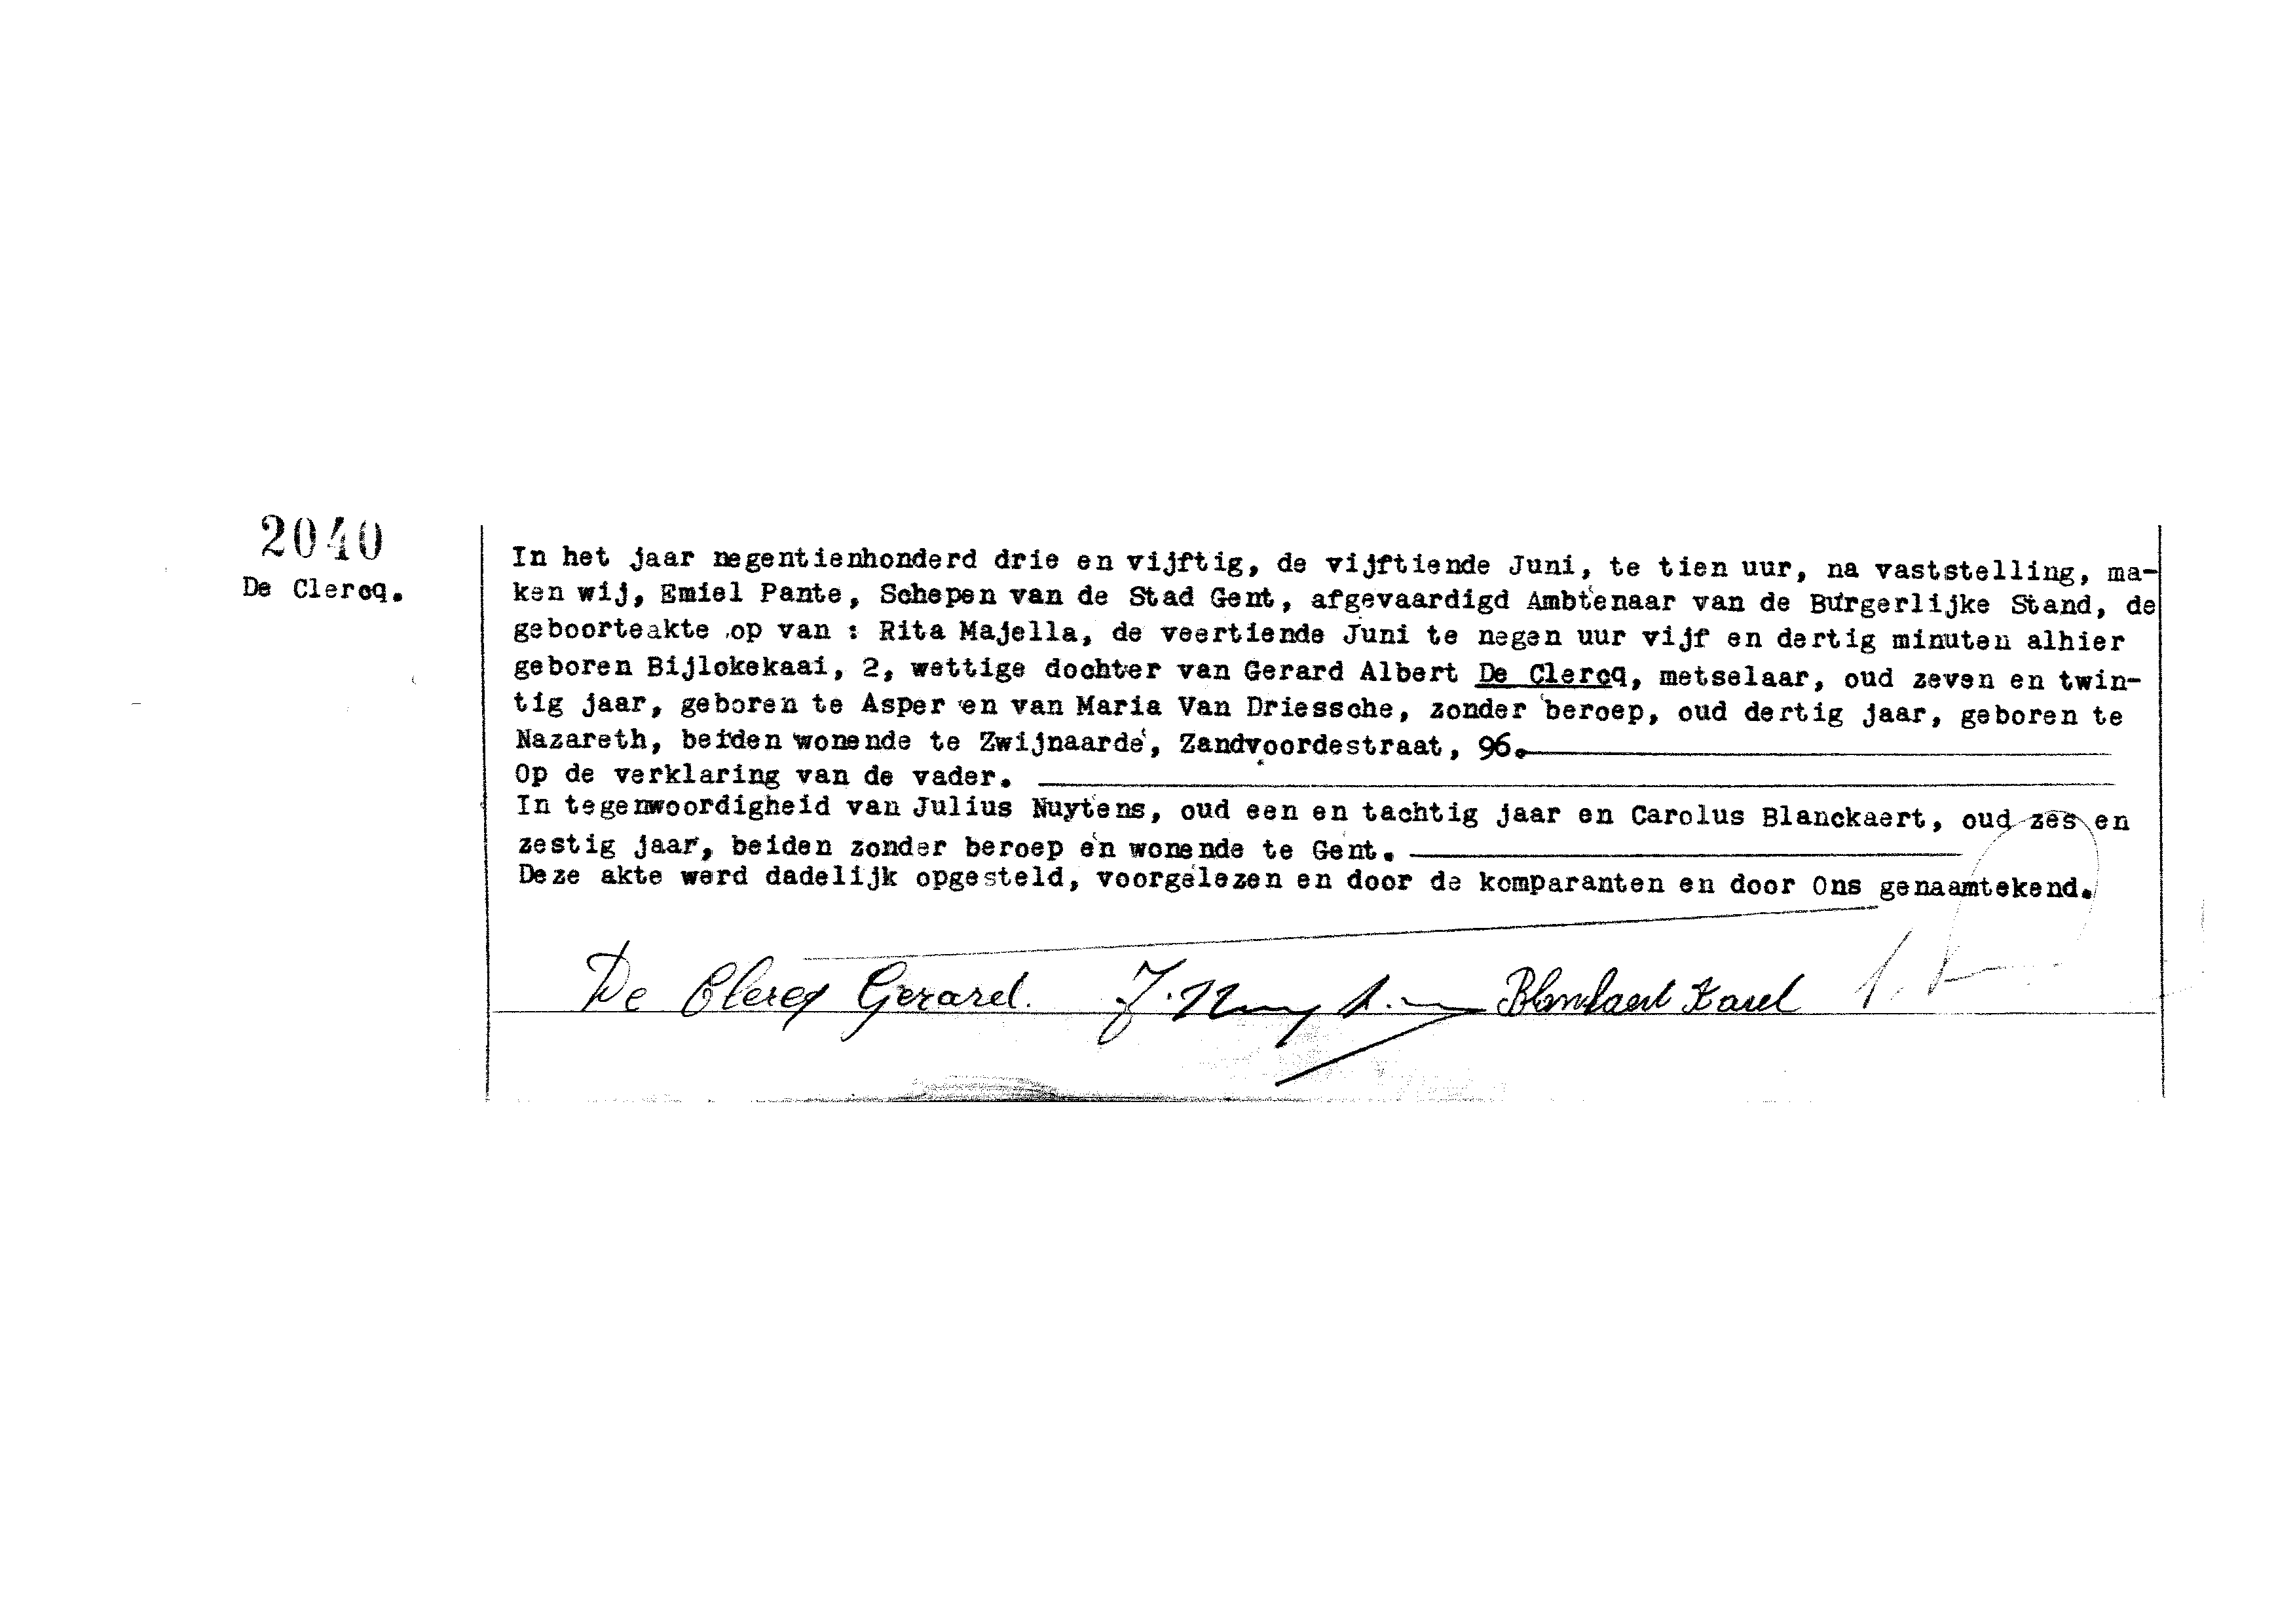 2040
De Clercq.
In het jaar negentienhonderd drie en vijftig, de vijftiende Juni, te tien uur, na vaststelling, ma-
ken wij, Emiel Pante, Schepen van de Stad Gent, afgevaardigd Ambtenaar van de Burgerlijke Stand, de
geboorteakte op van : Rita Majella, de veertiende Juni te negen uur vijf en dertig minuten alhier
geboren Bijlokekaai, 2, wettige dochter van Gerard Albert De Clercq, metselaar, oud zeven en twin-
tig jaar, geboren te Asper en van Maria Van Driessche, zonder beroep, oud dertig jaar, geboren te
Nazareth, beiden wonende te Zwijnaarde, Zandvoordestraat, 96.
Op de verklaring van de vader.
In tegenwoordigheid van Julius Nuytens, oud een en tachtig jaar en Carolus Blanckaert, oud zes en
zestig jaar, beiden zonder beroep en wonende te Gent.
Deze akte werd dadelijk opgesteld, voorgelezen en door de komparanten en door Ons genaamtekend.
De Clercq Gerard. Karel